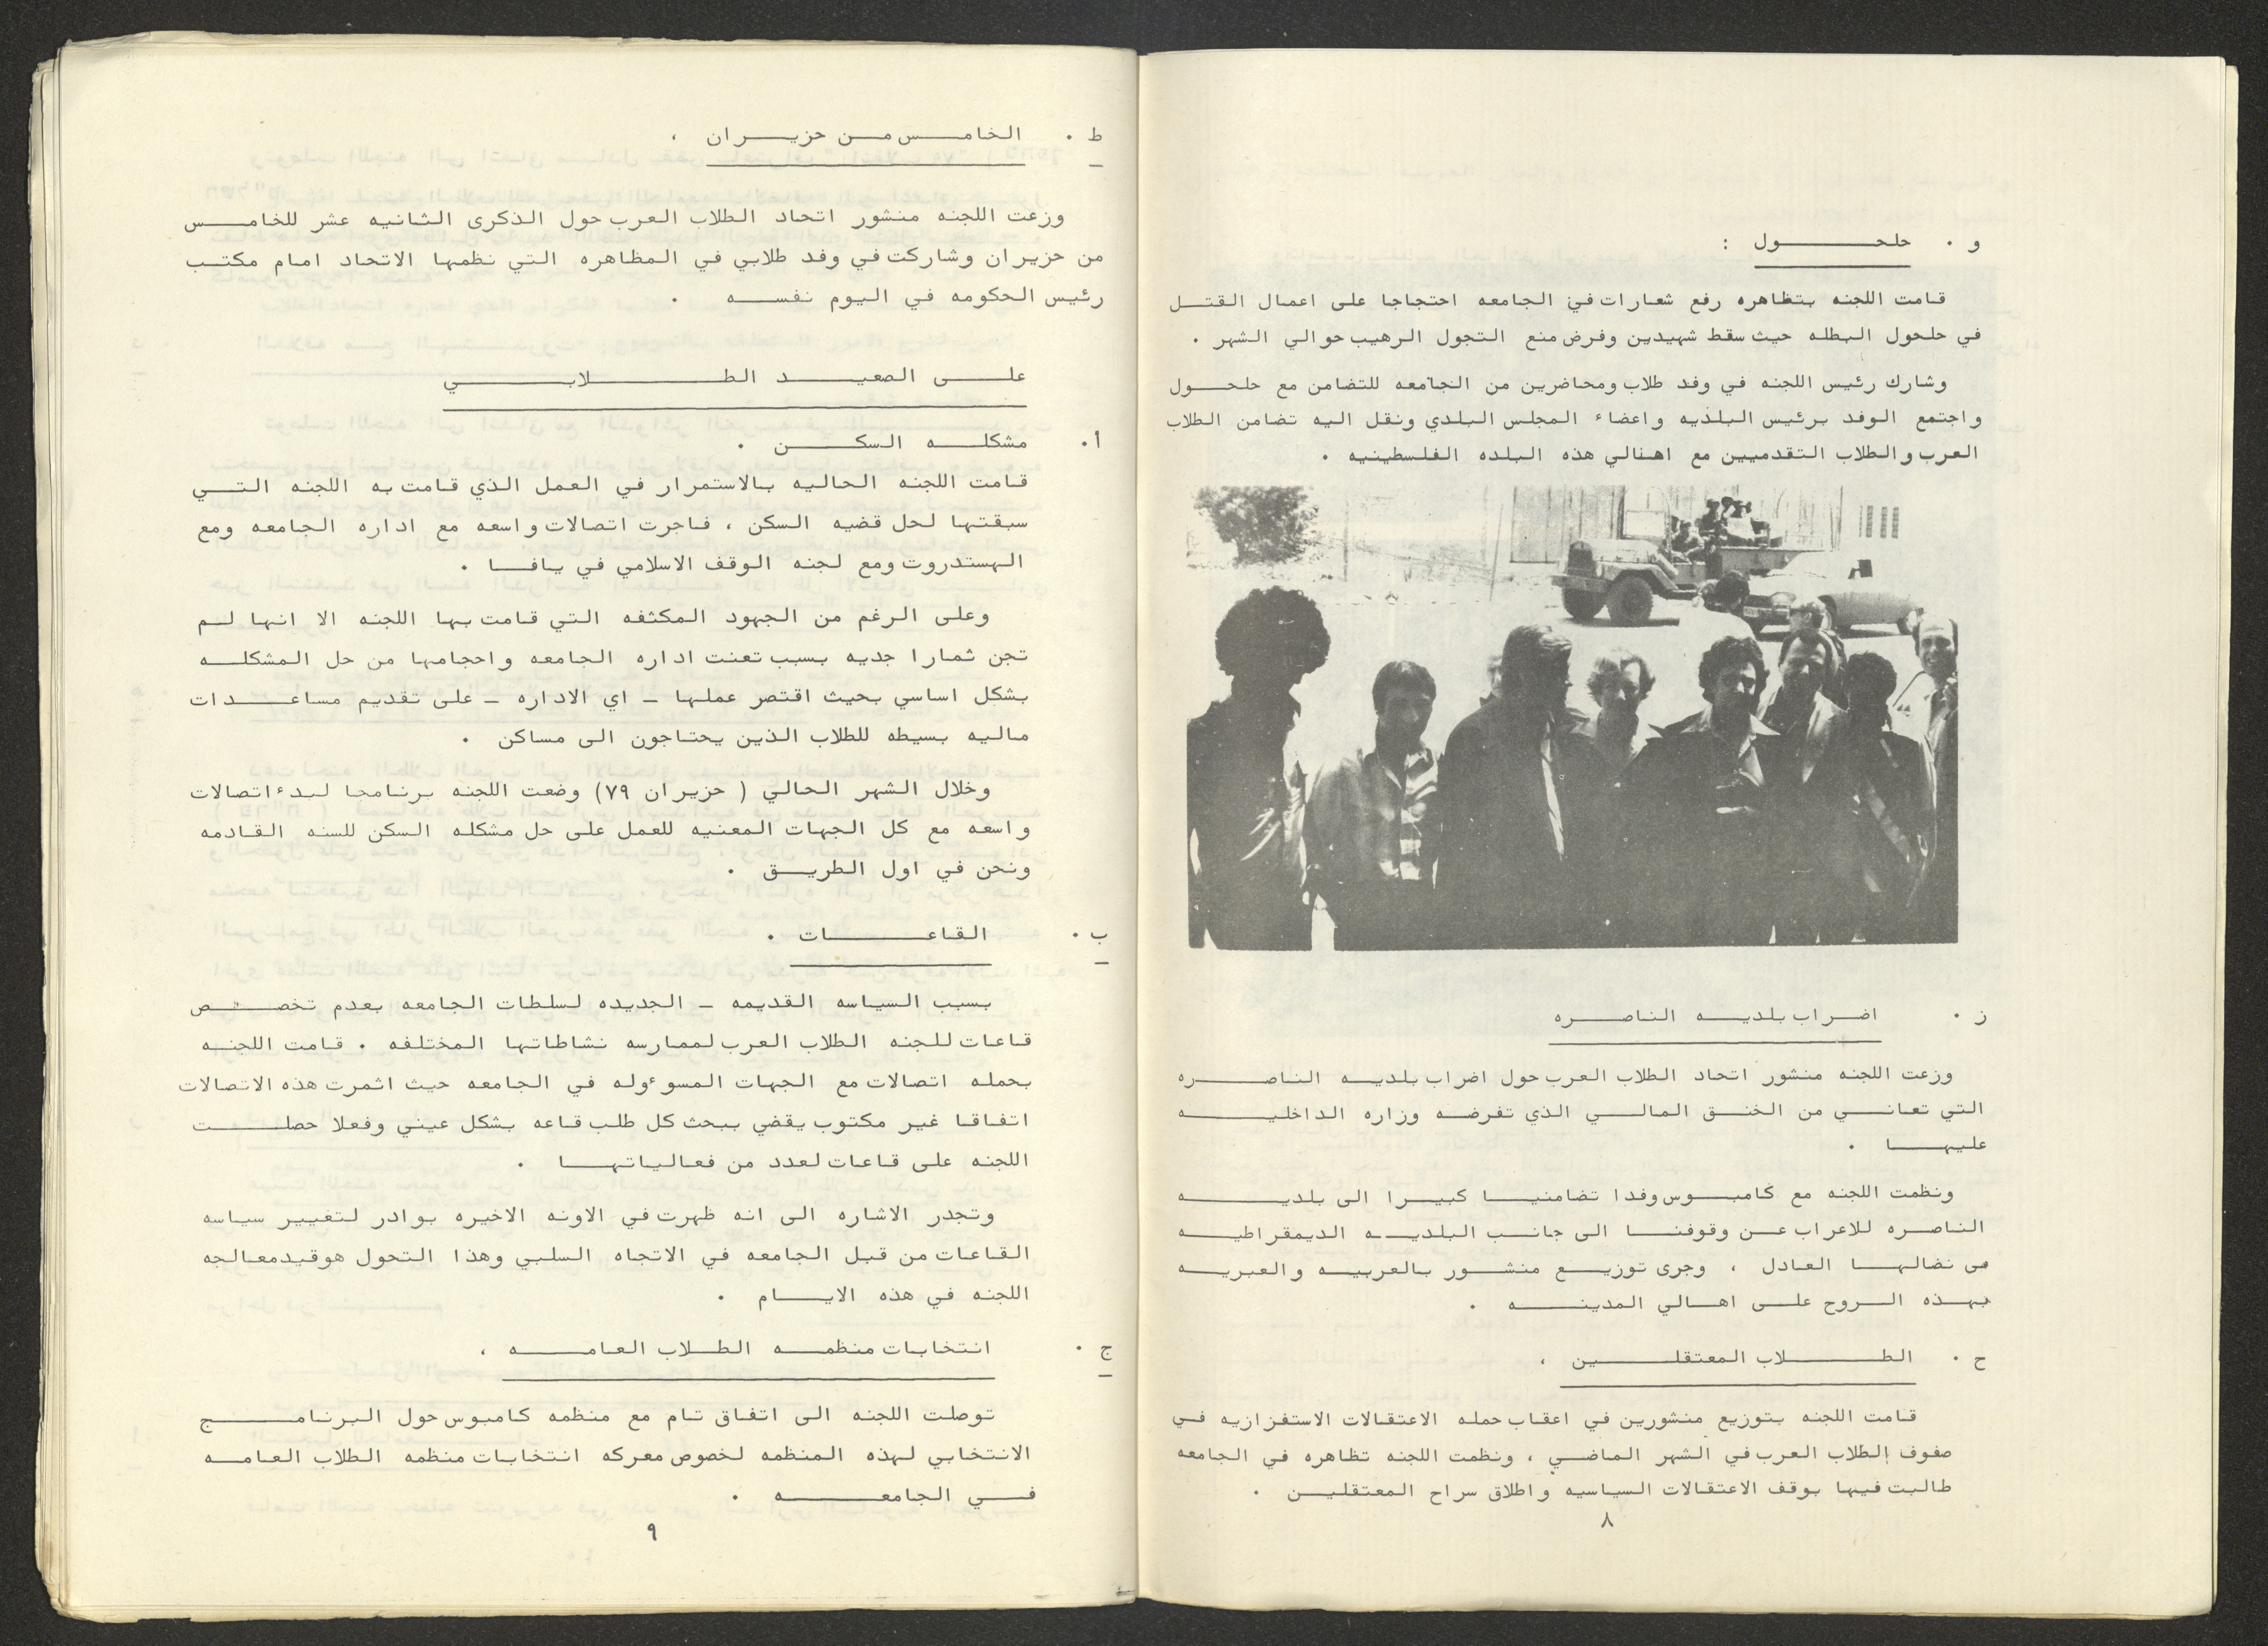 و . حلحول :
قامت اللجنه بتظاهره رفع شعارات في الجامعه احتجاجا على اعمال القتل
في حلحول البطله حيث سقط شهيدين وفرض منع التجول الرهيب حوالي الشهر .
وشارك رئيس اللجنه في وفد طلاب ومحاضرين من الجامعه للتضامن مع حلحول
واجتمع الوفد برئيس البلديه واعضاء المجلس البلدي ونقل اليه تضامن الطلاب
العرب والطلاب التقدميين مع اهالي هذه البلده الفلسطينيه .
ز . اضراب بلديه الناصره
وزعت اللجنه منشور اتحاد الطلاب العرب حول اضراب بلديه الناصره
التي تعاني من الخنق المالي الذي تفرضه وزاره الداخليه
عليها .
ونظمت اللجنه مع كامبوس وفدا تضامنيا كبيرا الى بلديه
الناصره للاعراب عن وقوفنا الى جانب البلديه الديمقراطيه
في نضالها العادل ، وجرى توزيع منشور بالعربيه والعبريه
بهذه الروح على اهالي المدينه .
ح . الطلاب المعتقلين ،
قامت اللجنه بتوزيع منشورين في اعقاب حمله الاعتقالات الاستفزازيه في
صفوف الطلاب العرب في الشهر الماضي ، ونظمت اللجنه تظاهره في الجامعه
طالبت فيها بوقف الاعتقالات السياسيه واطلاق سراح المعتقلين .
٨
ط . الخامس من حزيران ،
وزعت اللجنه منشور اتحاد الطلاب العرب حول الذكرى الثانيه عشر للخامس
من حزيران وشاركت في وفد طلابي في المظاهره التي نظمها الاتحاد امام مكتب
رئيس الحكومه في اليوم نفسه .
على الصعيد الطلابي
أ. مشكله السكن .
قامت اللجنه الحاليه بالاستمرار في العمل الذي قامت به اللجنه التي
سبقتها لحل قضيه السكن ، فاجرت اتصالات واسعه مع اداره الجامعه ومع
الهستدروت ومع لجنه الوقف الاسلامي في يافا .
وعلى الرغم من الجهود المكثفه التي قامت بها اللجنه الا انها لم
تجن ثمارا جديه بسبب تعنت اداره الجامعه واحجامها من حل المشكله
بشكل اساسي بحيث اقتصر عملها - اي الاداره - على تقديم مساعدات
ماليه بسيطه للطلاب الذين يحتاجون الى مساكن .
وخلال الشهر الحالي ( حزيران ٧٩) وضعت اللجنه برنامجا لبدء اتصالات
واسعه مع كل الجهات المعنيه للعمل على حل مشكله السكن للسنه القادمه
ونحن في اول الطريق .
ب . القاعات .
بسبب السياسه القديمه - الجديده لسلطات الجامعه بعدم تخصص
قاعات للجنه الطلاب العرب لممارسه نشاطاتها المختلفه . قامت اللجنه
بحمله اتصالات مع الجهات المسوءوله في الجامعه حيث اثمرت هذه الاتصالات
اتفاقا غير مكتوب يقضي ببحث كل طلب قاعه بشكل عيني وفعلا حصلت
اللجنه على قاعات لعدد من فعالياتها .
وتجدر الاشاره الى انه ظهرت في الاونه الاخيره بوادر لتغيير سياسه
القاعات من قبل الجامعه في الاتجاه السلبي وهذا التحول هوقيدمعالجه
اللجنه في هذه الايام .
ج . انتخابات منظمه الطلاب العامه ،
توصلت اللجنه الى اتفاق تام مع منظمه كامبوس حول البرنامج
الانتخابي لهذه المنظمه لخصوص معركه انتخابات منظمه الطلاب العامه
في الجامعه .
٩